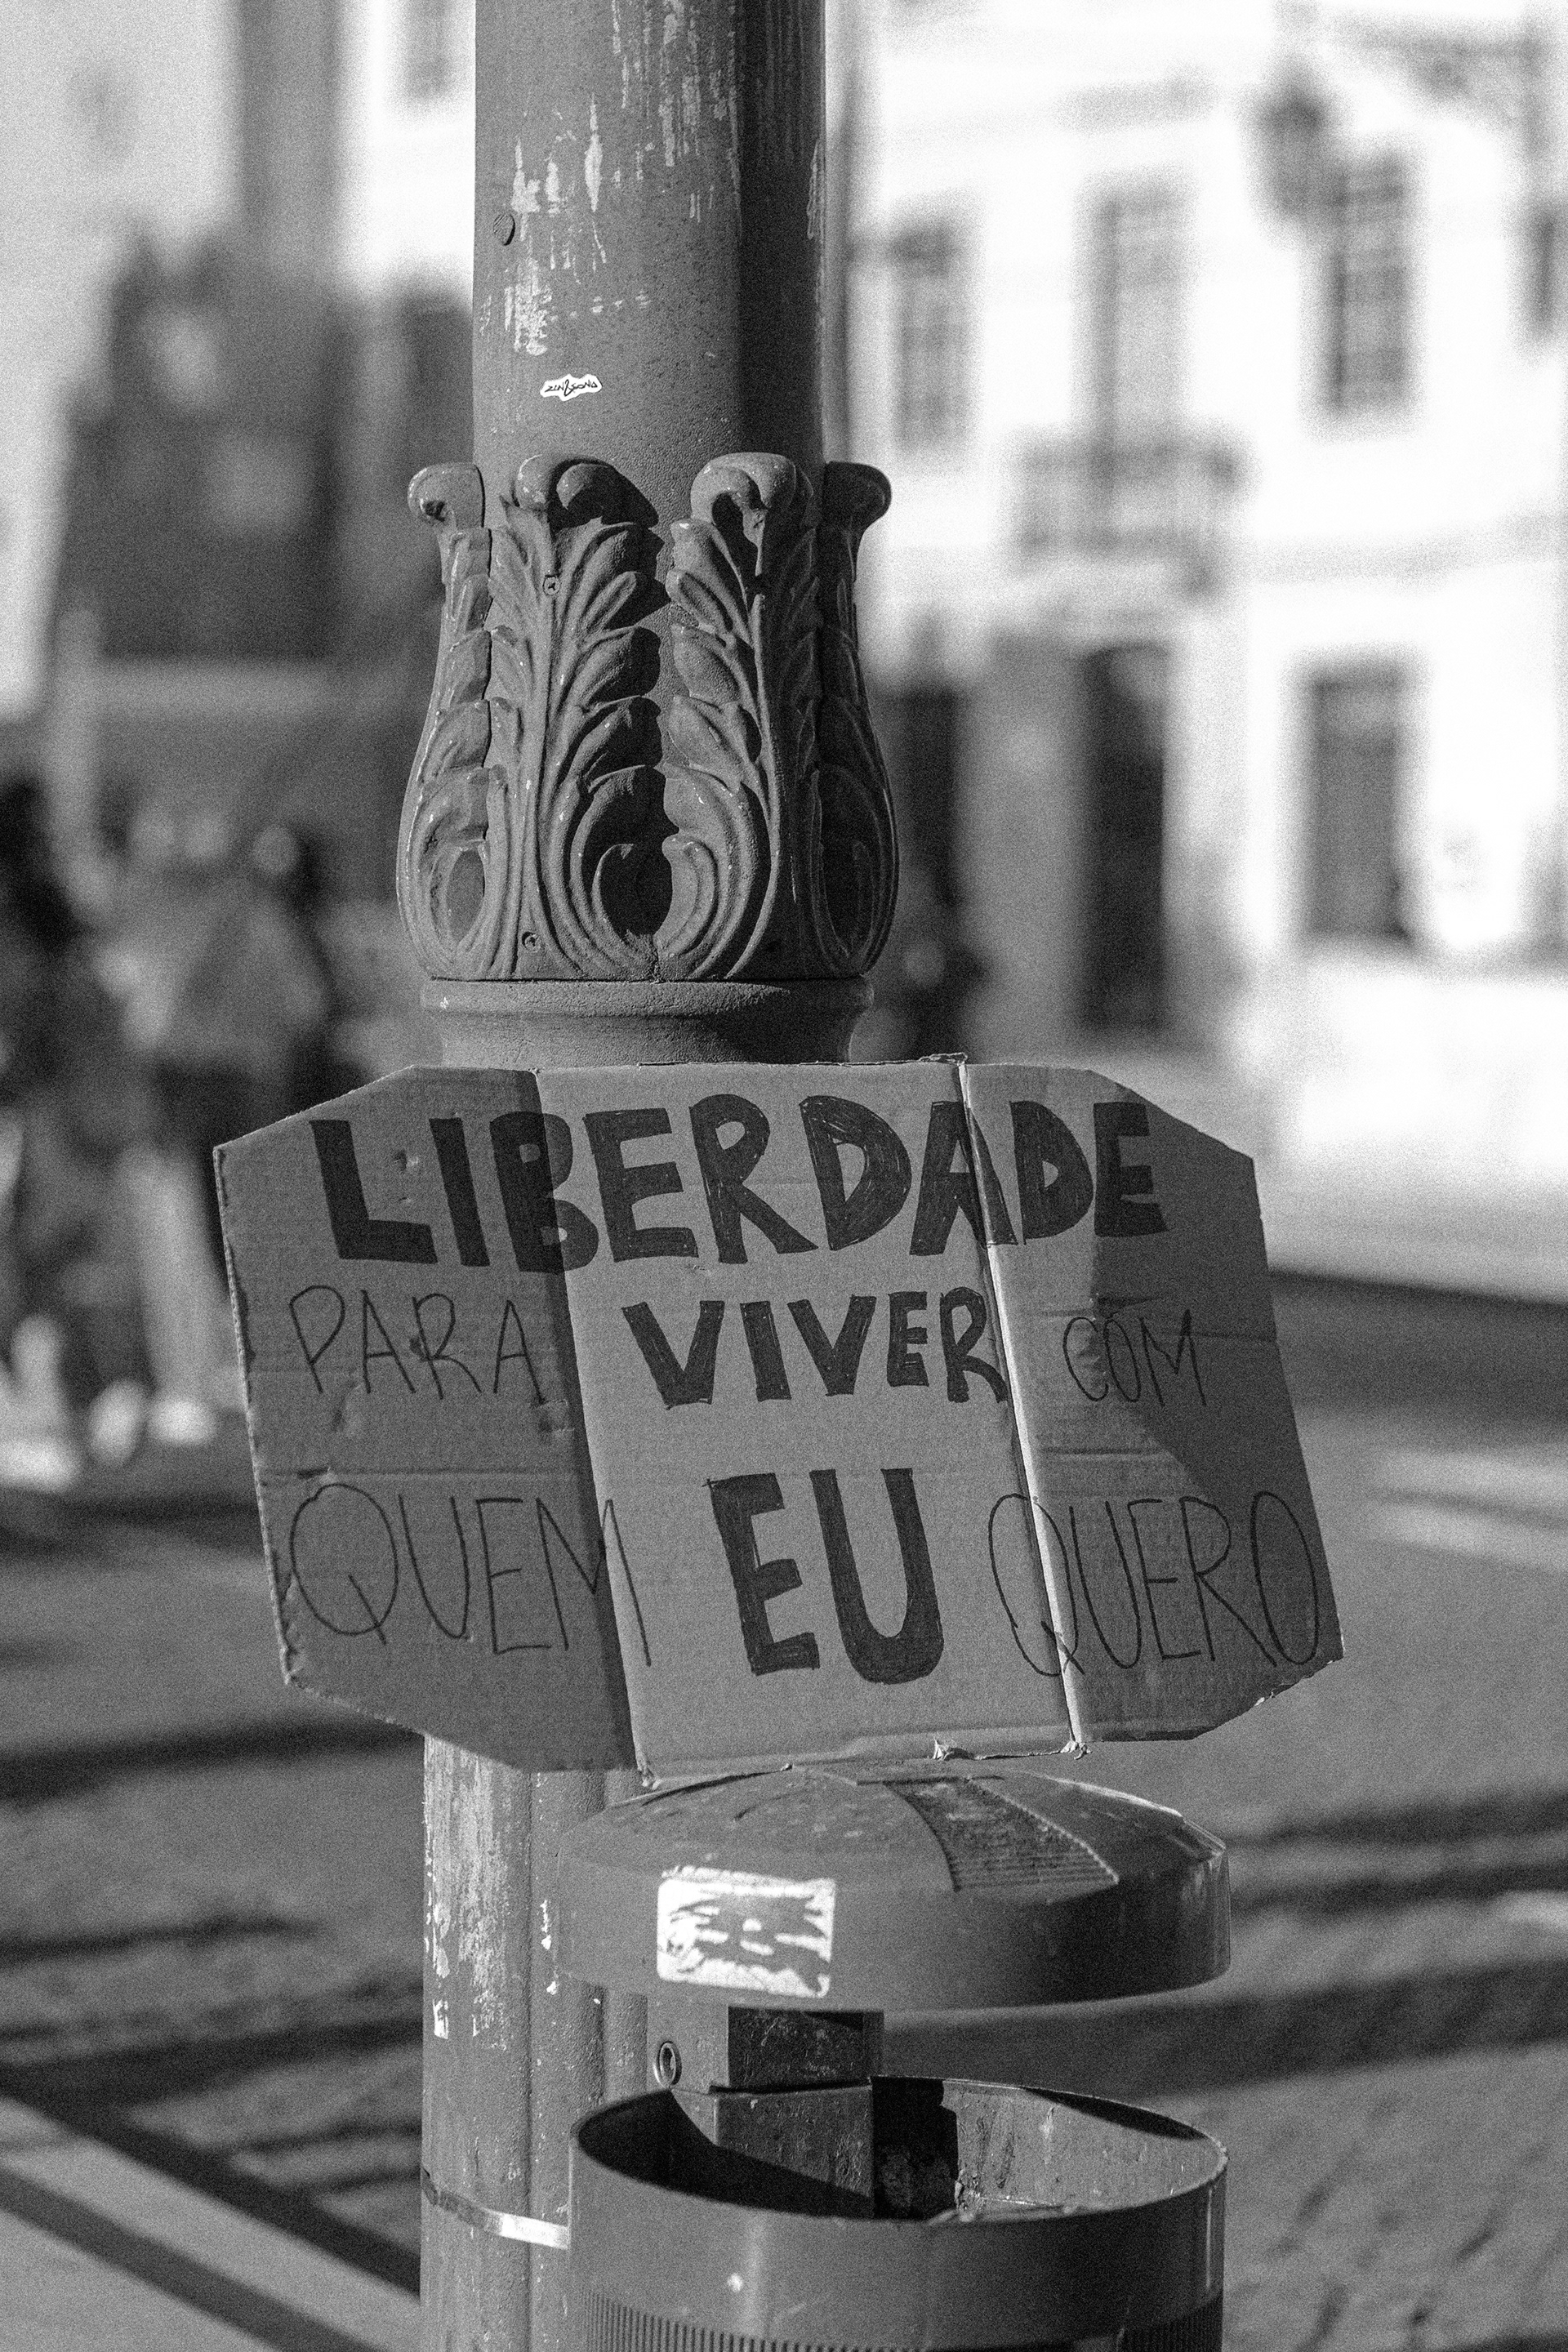 LIBERDADE
PARA VIVER COM
QUEM EU QUERO